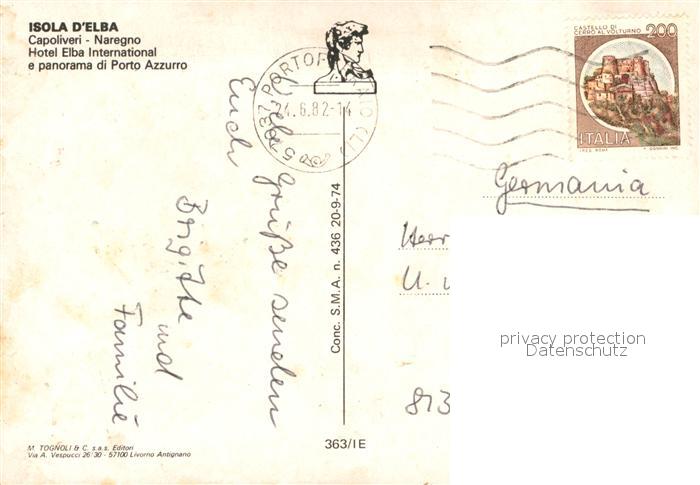 ISOLA D'ELBA
Capoliveri - Naregno
Hotel Elba International
e panorama di Porto Azzurro
CASTELLO DI
CERRO AL VOLTURNO
200
ITALIA
I.P.Z.S. ROMA
24.6.82-14
Germania
Viele Grüße senden
Euch
Brigitte
und
Familie
Herr
U.
813
Conc. S.M.A. n. 436 20-9-74
privacy protection
Datenschutz
363/IE
M. TOGNOLI & C. s.a.s. Editori
Via A. Vespucci 26/30 - 57100 Livorno Antignano